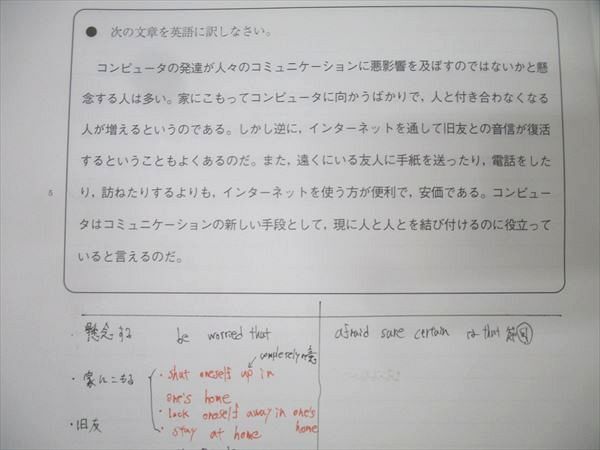 ● 次の文章を英語に訳しなさい。
コンピュータの発達が人々のコミュニケーションに悪影響を及ぼすのではないかと懸
念する人は多い。家にこもってコンピュータに向かうばかりで，人と付き合わなくなる
人が増えるというのである。しかし逆に，インターネットを通して旧友との音信が復活
するということもよくあるのだ。また，遠くにいる友人に手紙を送ったり，電話をした
5 り，訪ねたりするよりも，インターネットを使う方が便利で，安価である。コンピュー
タはコミュニケーションの新しい手段として，現に人と人とを結び付けるのに役立って
いると言えるのだ。
・懸念する be worried that afraid sure certain は that 節
completely の意
・家にこもる ・shut oneself up in
one's home
・lock oneself away in one's
home
・stay at home
・旧友